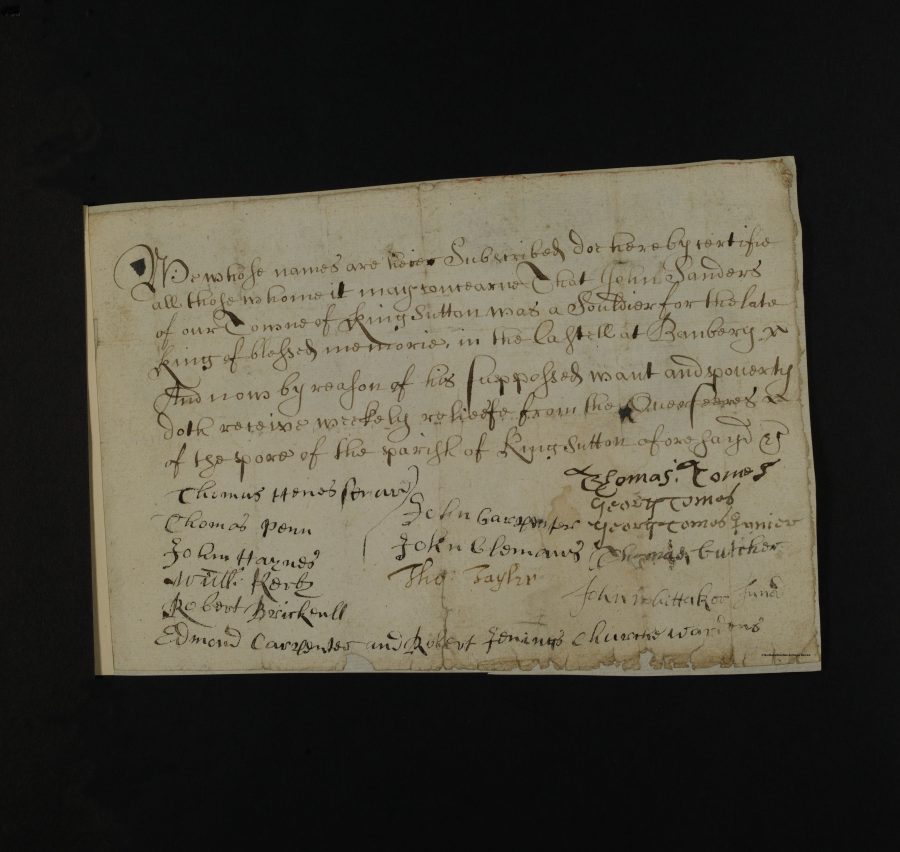 We whose names are heere Subscribed doe hereby certifie
all those whome it may concearne That John Sanders
of our Towne of Kingsutton was a Souldier for the late
King of blessed memorie, in the Castell at Banbery
And now by reason of his supposed want and poverty
doth receive weekely releefe from the Overseeres
of the pore of the parish of Kingsutton aforesayd
Thomas Tomes
Thomas Henes
George Tomes
Thomas Penn
John Carpenter
George Tomes Junier
John Haynes
John Clemans
Butcher
Will: Kerby
Tho: Taylor
Robert Bricknell
John Whittaker
Edmond Carpenter and Robert Jenings Churchwardens